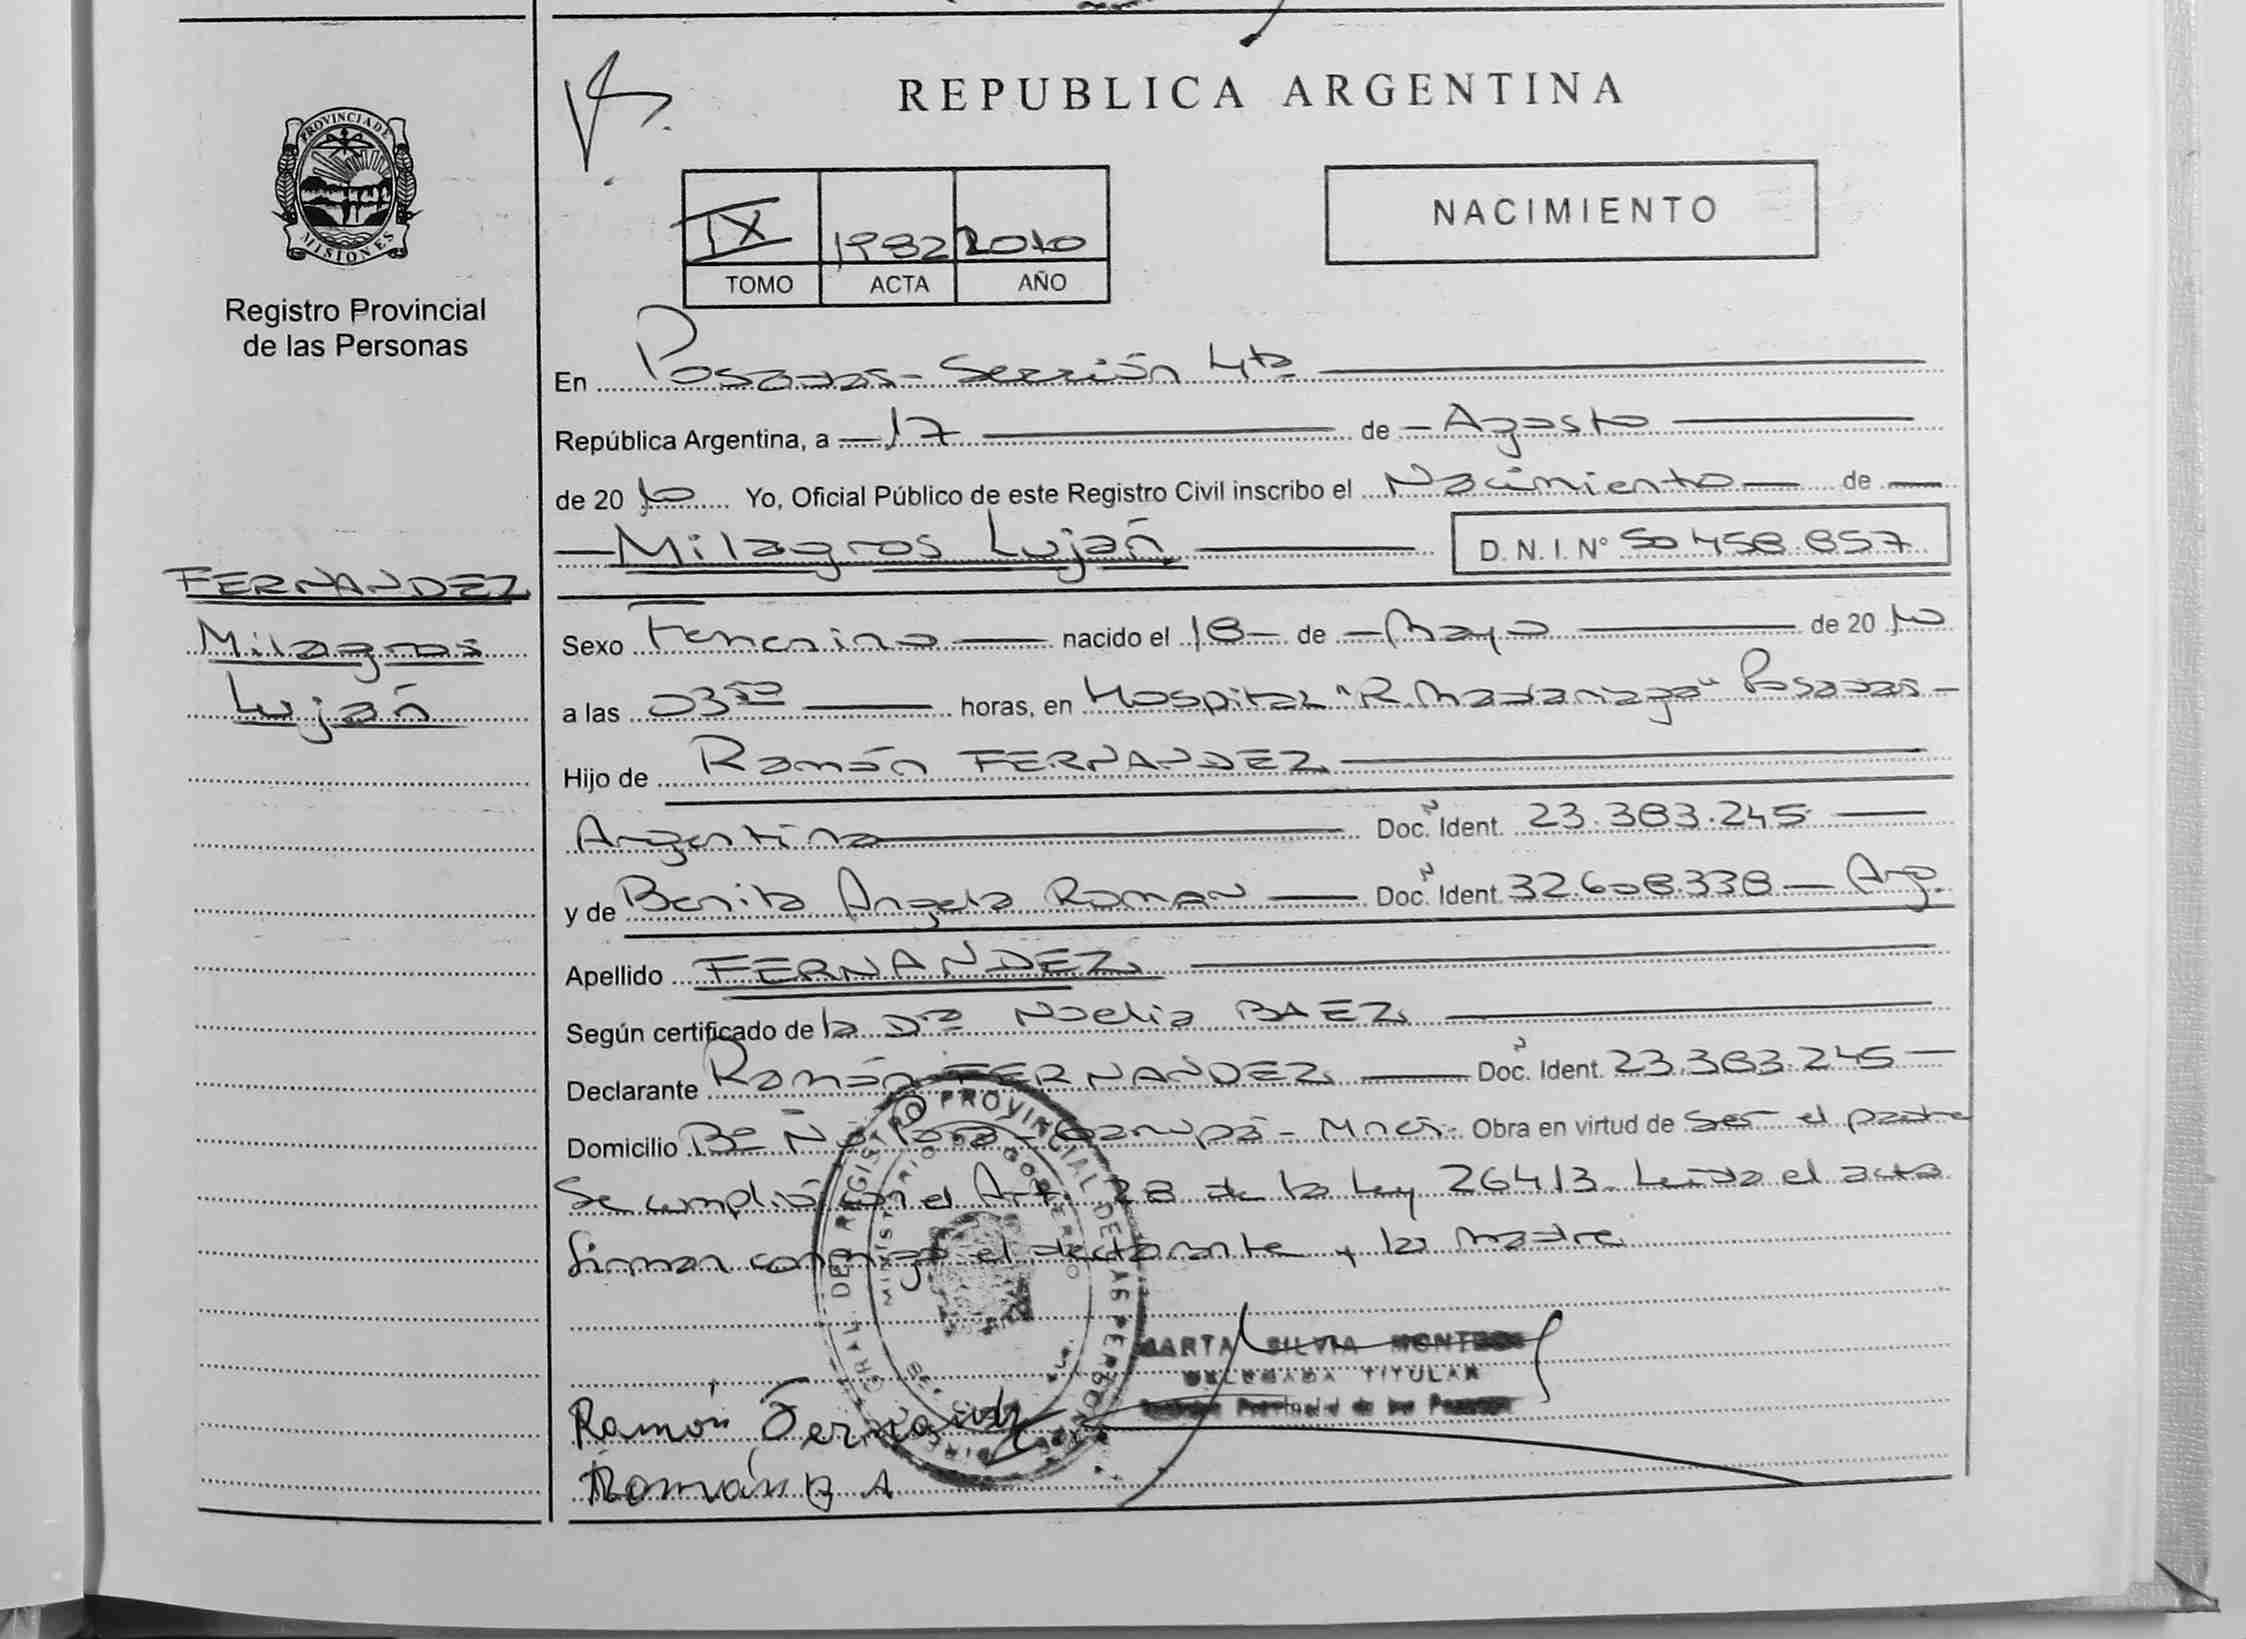 REPUBLICA ARGENTINA
PROVINCIA DE MISIONES
Registro Provincial
de las Personas
IX 1982 2010
TOMO ACTA AÑO
NACIMIENTO
En Posadas - Sección 4ta
República Argentina, a 17 de Agosto
de 2010 Yo, Oficial Público de este Registro Civil inscribo el Nacimiento de
Milagros Luján D.N.I. N° 50.458.857
FERNANDEZ
Milagros
Luján
Sexo Femenino nacido el 18 de Mayo de 2010
a las 03 50 horas, en Hospital "R. Madariaga" Posadas -
Hijo de Ramón FERNANDEZ
Argentina Doc. Ident. 23.383.245
y de Benita Angela ROMAN Doc. Ident. 32.608.338 - Arg.
Apellido FERNANDEZ
Según certificado de la Dra Noelia BAEZ
Declarante Ramón FERNANDEZ Doc. Ident. 23.383.245
Domicilio Bº Garupá - Mnes. Obra en virtud de ser el padre
Se cumplió con el Art. 28 de la Ley 26413. Leida el acta
firman conmigo el declarante y la madre
MARTA SILVIA
DELEGADA TITULAR
Provincial de las Personas
Ramón Fernandez
Román B A